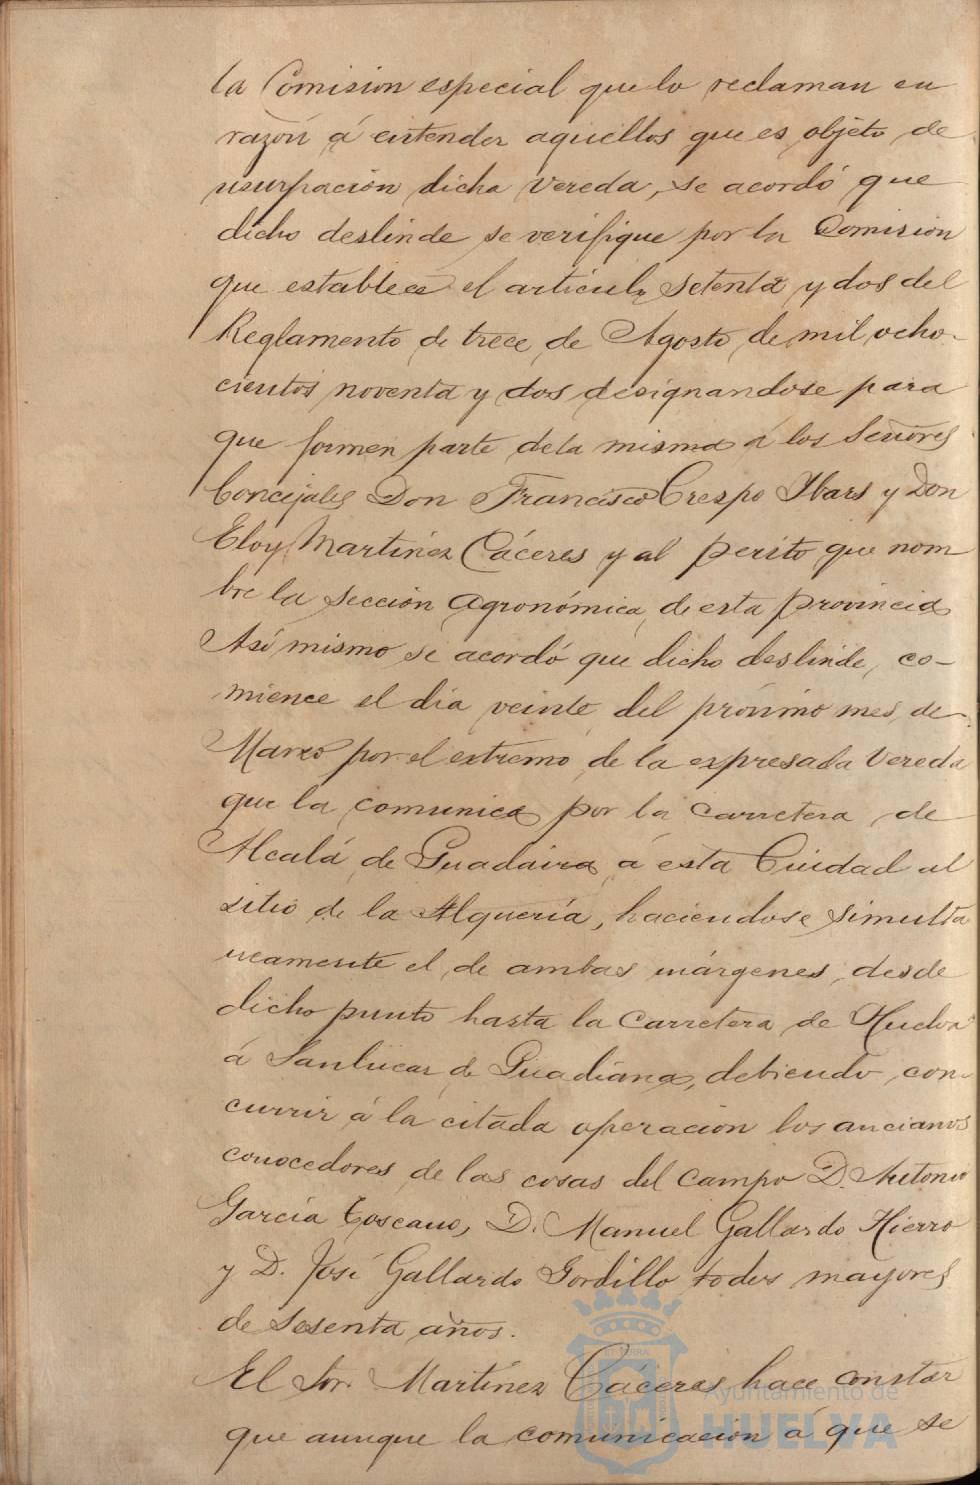 la Comision especial que lo reclaman en
razón á entender aquellos que es objeto de
usurpación dicha vereda, se acordó que
dicho deslinde se verifique por la Comision
que establece el articulo setenta y dos del
Reglamento de trece de Agosto de mil ocho-
cientos noventa y dos designandose para
que formen parte de la misma á los Señores
Concejales Don Francisco Crespo Ybars y Don
Eloy Martinez Cáceres y al perito que nom
bre la sección Agronómica de esta provincia
Así mismo se acordó que dicho deslinde, co-
mience el dia veinte del próximo mes de
Marzo por el extremo de la expresada vereda
que la comunica por la carretera de
Alcalá de Guadaira á esta Ciudad al
sitio de la Alquería, haciendose simulta
neamente el de ambas márgenes, desde
dicho punto hasta la carretera de Huelva
á Sanlucar de Guadiana, debiendo con-
currir á la citada operacion los ancianos
conocedores de las cosas del campo D. Antonio
García Toscano, D. Manuel Gallardo Hierro
y D. José Gallardo Gordillo todos mayores
de sesenta años.
El Sor. Martínez Cáceres hace constar
que aunque la comunicación á que se
Ayuntamiento de
HUELVA